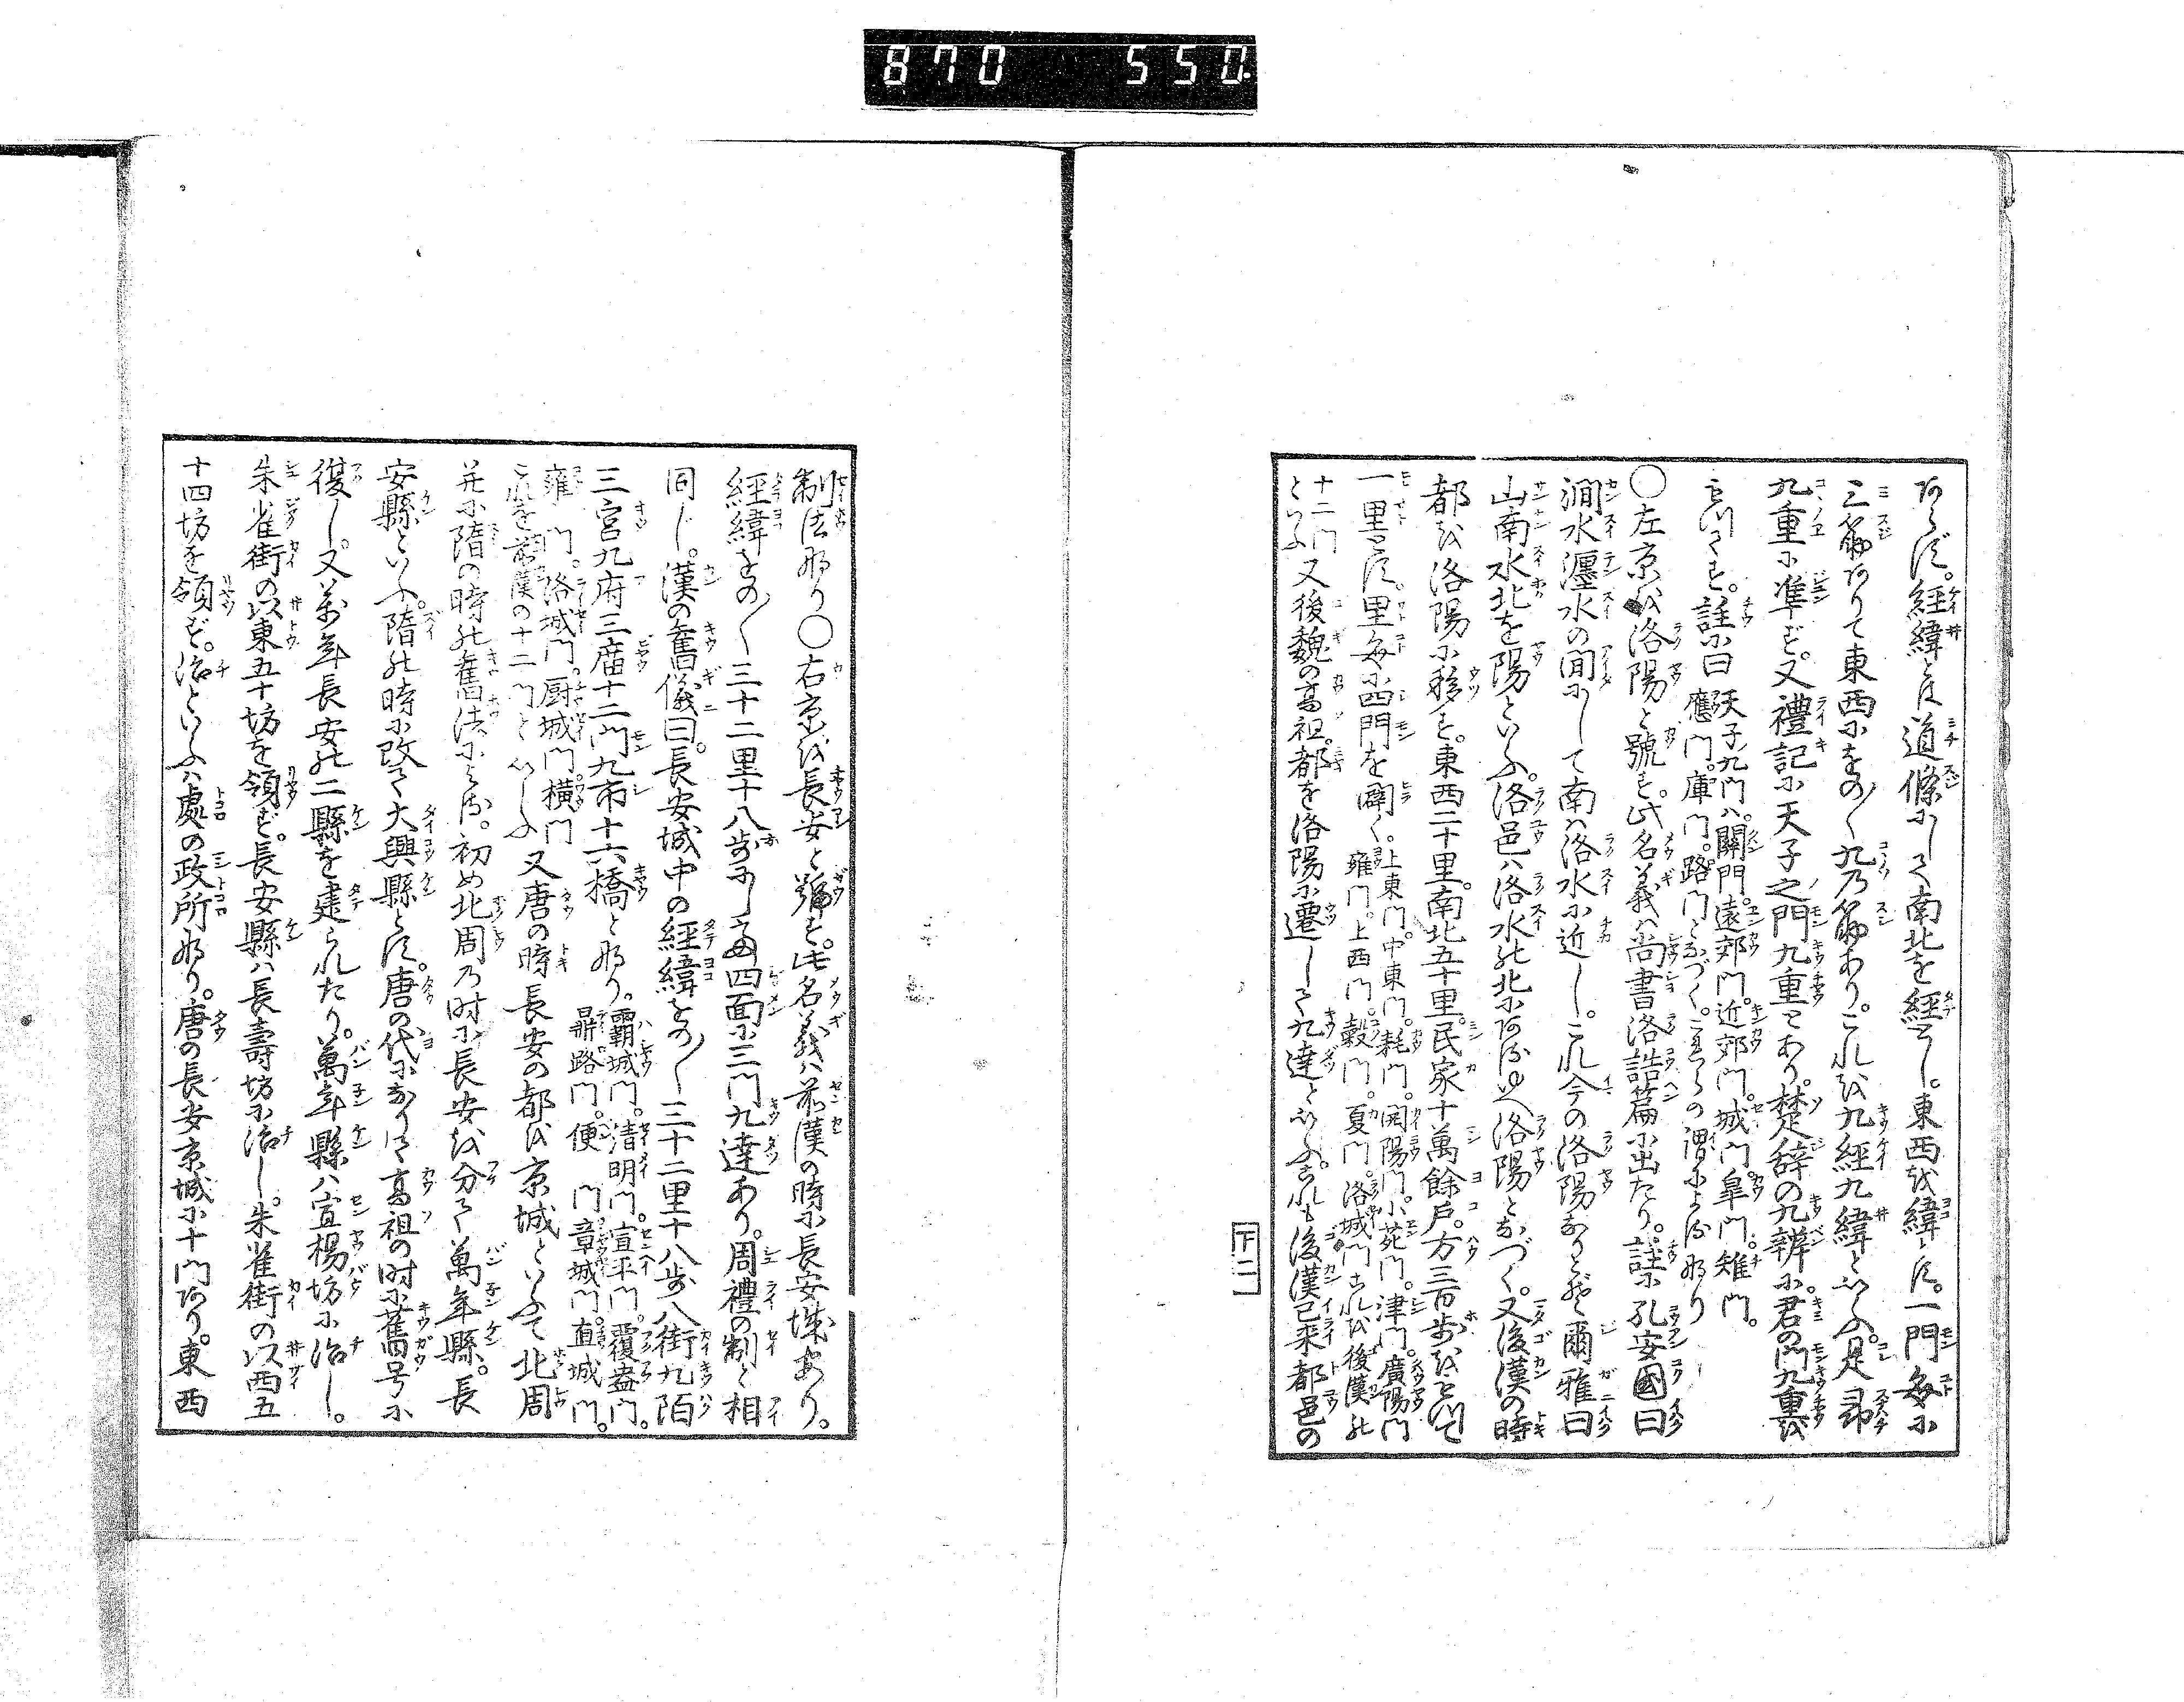 870 550
あらず。經緯とは道條にして南北を經とし。東西を緯とす。一門毎に
三筋ありて東西にをの〱九乃筋あり。これを九經九緯といふ。是即
九重に準ず。又禮記に天子之門九重とあり。楚辞の九辨に。君の門九重を
もつてす。註に曰
天子九門ハ。關門。遠郊門。近郊門。城門。皐門。雉門。
應門。庫門。路門となづく。これらの謂による也り
○左京を洛陽と號す。此名義ハ尚書洛誥篇に出たり。註に孔安國曰
澗水瀍水の間にして南ハ洛水に近し。これ今の洛陽なりとぞ。爾雅曰
山南水北を陽といふ。洛邑ハ洛水の北にあるゆへ洛陽となづく。又後漢の時
都を洛陽に移す。東西二十里。南北五十里。民家十萬餘戸。方三百歩をもつて
一里とす。里毎に四門を開く。
上東門。中東門。耗門。開陽門。小苑門。津門。廣陽門
雍門。上西門。穀門。夏門。洛城門これを後漢の
十二門といふ
又後魏の高祖。都を洛陽に遷して九達といふ。これも後漢已来都邑の
下二
制法也り○右京を長安と號す。此名義ハ前漢の時に長安城あり。
經緯をの〱三十二里十八歩にして四面に三門九達あり。周禮の制と相
同じ。漢の舊儀曰。長安城中の經緯をの〱三十二里十八歩八街九陌
三宮九府三廟十二門九市十六橋と也り。
霸城門。清明門。宣平門。覆盎門。
鼎路門。便門。章城門。直城門。
雍門。洛城門。厨城門。横門
これを前漢の十二門といふ
又唐の時長安の都を京城といふて北周
并に隋の時の舊法による。初め北周乃時に長安を分て萬年縣。長
安縣といふ。隋の時に改て大興縣とす。唐の代になりて高祖の時に舊号に
復し。又萬年長安の二縣を建られたり。萬年縣ハ宣楊坊に治し。
朱雀街の以東五十坊を領ず。長安縣ハ長壽坊に治し。朱雀街の以西五
十四坊を領ず。治といふハ處の政所也り。唐の長安京城に十門あり。東西